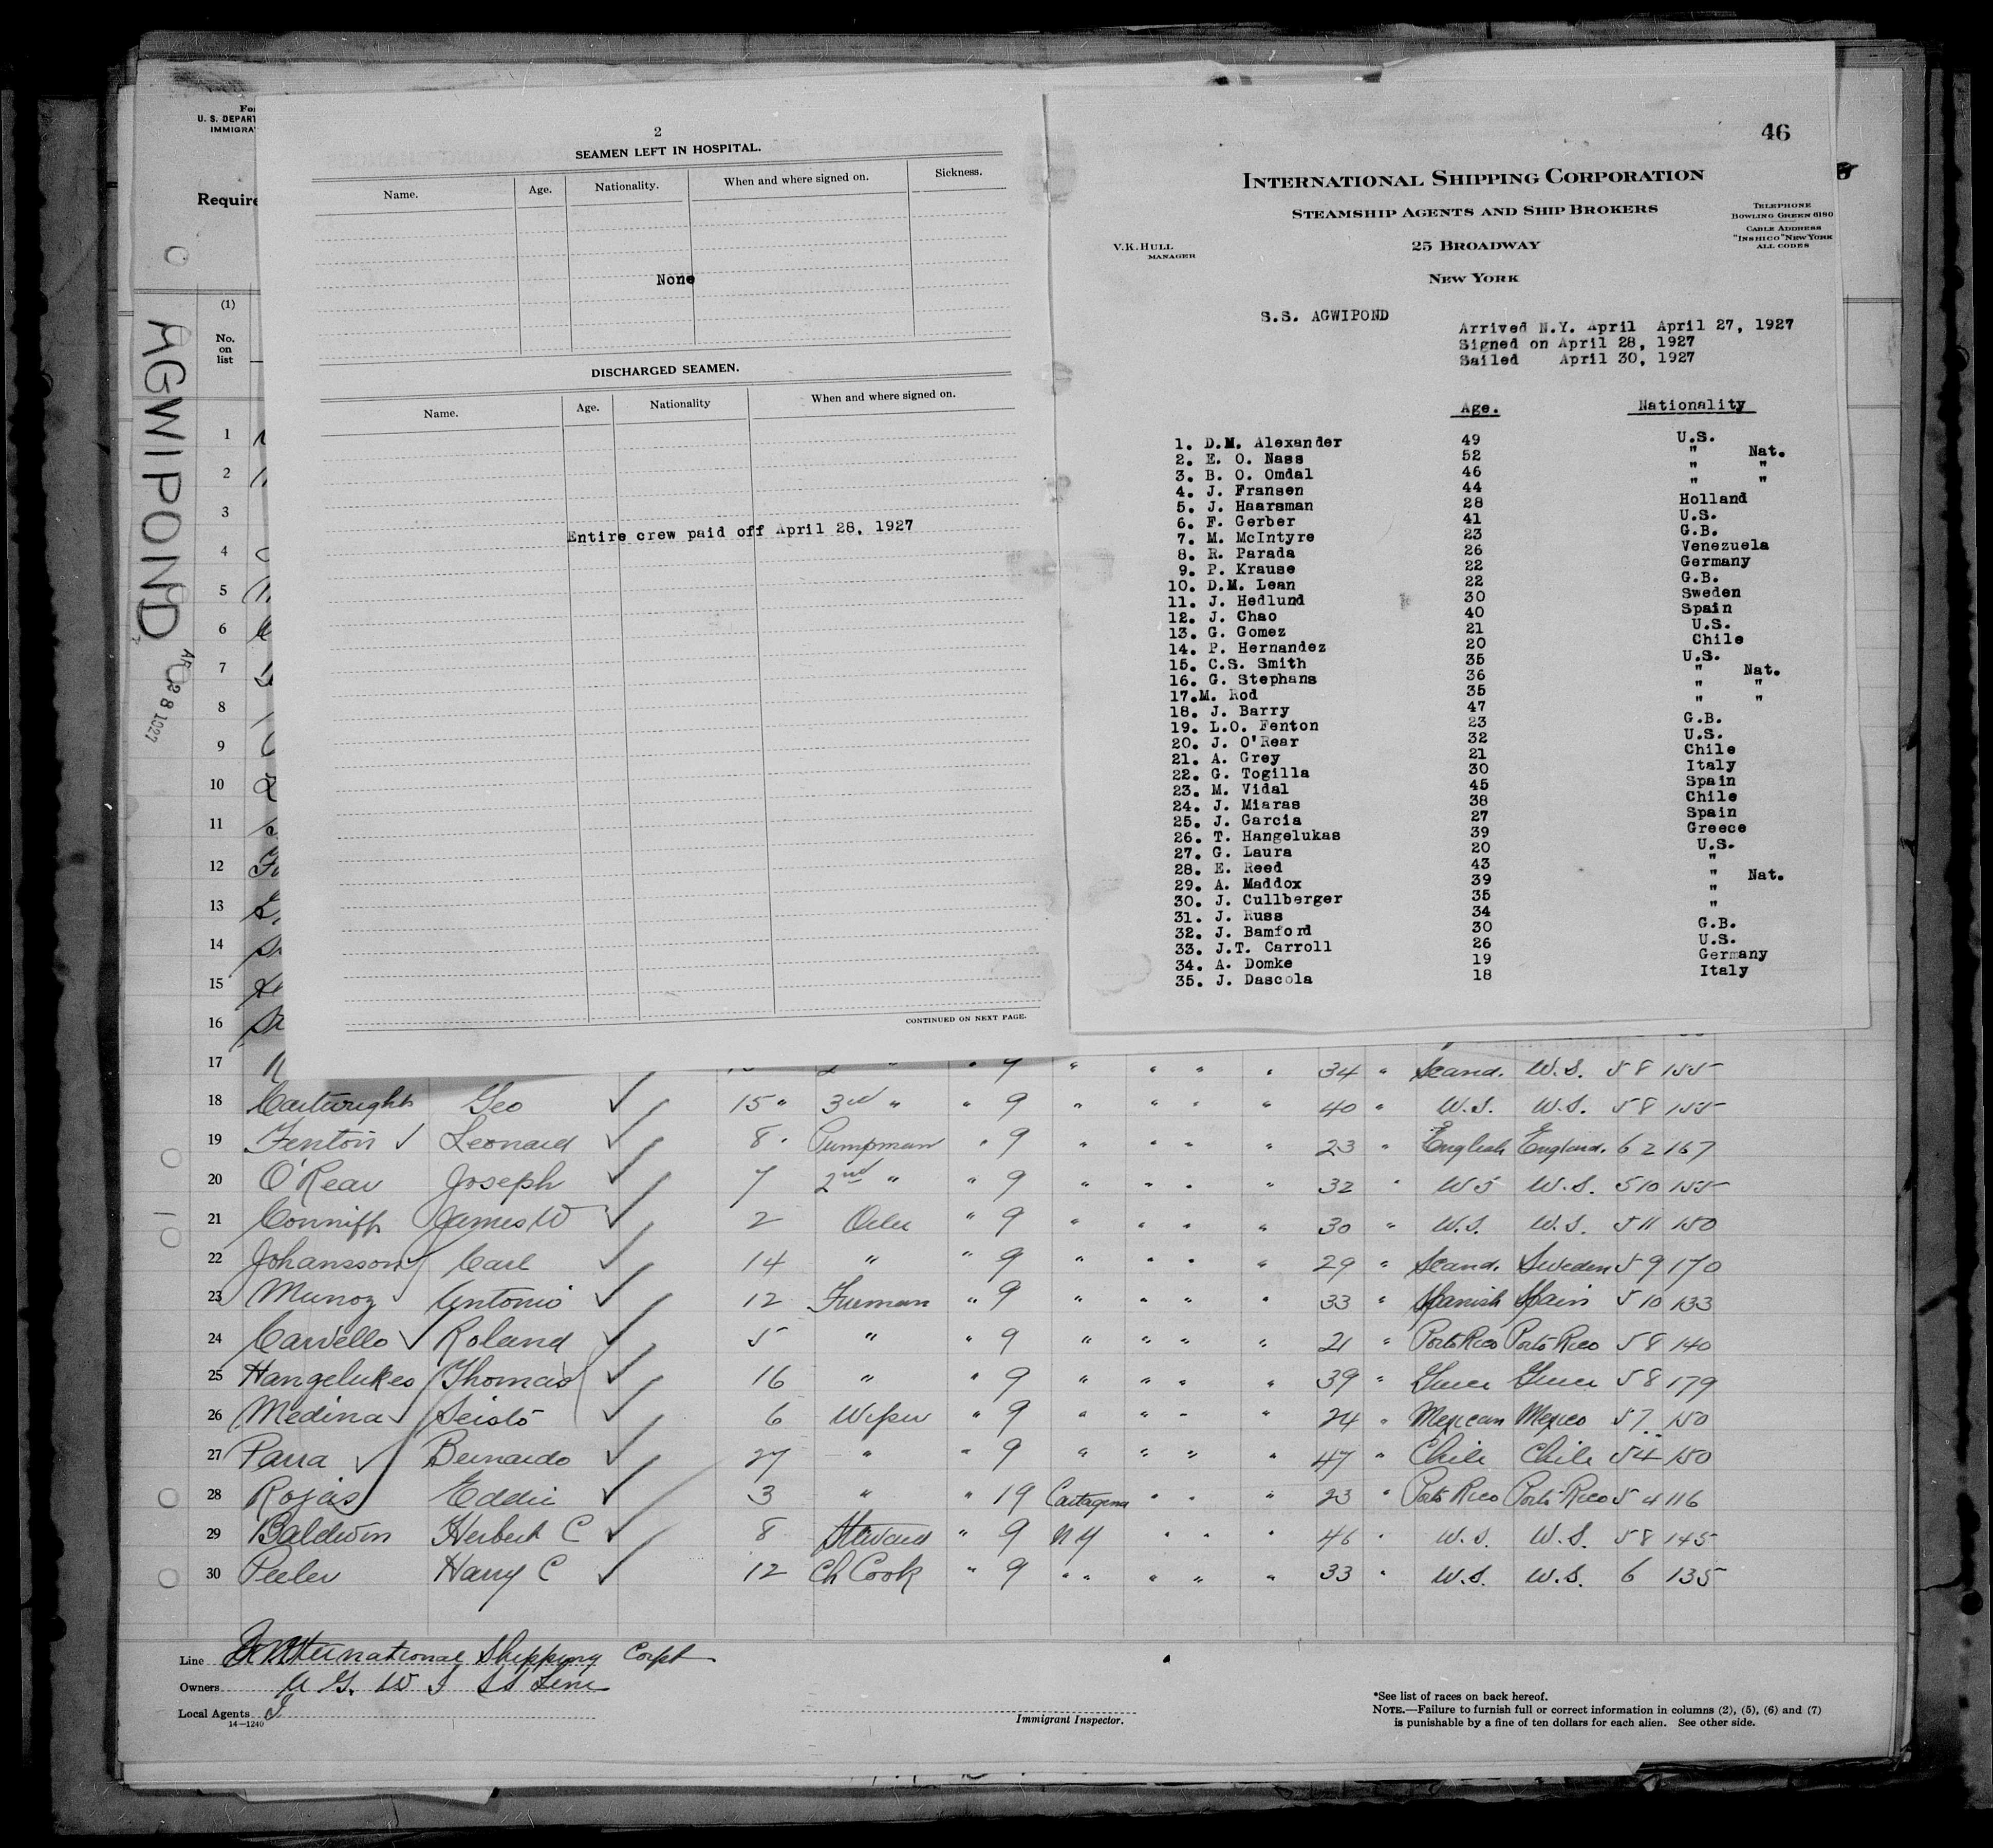 For
U. S. DEPART
IMMIGRA
Require
(1)
No.
on
list
AGWIPOND
2
SEAMEN LEFT IN HOSPITAL.
Name. Age. Nationality. When and where signed on. Sickness.
None
DISCHARGED SEAMEN.
Name. Age. Nationality When and where signed on.
Entire crew paid off April 28, 1927
CONTINUED ON NEXT PAGE.
46
INTERNATIONAL SHIPPING CORPORATION
STEAMSHIP AGENTS AND SHIP BROKERS
25 BROADWAY
NEW YORK
V.K. HULL
MANAGER
TELEPHONE
BOWLING GREEN 6180
CABLE ADDRESS
"INSHICO" NEW YORK
ALL CODES
S.S. AGWIPOND
Arrived N.Y. April April 27, 1927
Signed on April 28, 1927
Sailed April 30, 1927
Age. Nationality
1. D.M. Alexander 49 U.S.
2. E. O. Nass 52 " Nat.
3. B. O. Omdal 46 " "
4. J. Fransen 44 " "
5. J. Haarsman 28 Holland
6. F. Gerber 41 U.S.
7. M. McIntyre 23 G.B.
8. R. Parada 26 Venezuela
9. P. Krause 22 Germany
10. D.M. Lean 22 G.B.
11. J. Hedlund 30 Sweden
12. J. Chao 40 Spain
13. G. Gomez 21 U.S.
14. P. Hernandez 20 Chile
15. C.S. Smith 35 U.S.
16. G. Stephans 36 " Nat.
17.M. Rod 35 " "
18. J. Barry 47 " "
19. L.O. Fenton 23 G.B.
20. J. O'Rear 32 U.S.
21. A. Grey 21 Chile
22. G. Togilla 30 Italy
23. M. Vidal 45 Spain
24. J. Miaras 38 Chile
25. J. Garcia 27 Spain
26. T. Hangelukas 39 Greece
27. G. Laura 20 U.S.
28. E. Reed 43 "
29. A. Maddox 39 " Nat.
30. J. Cullberger 35 "
31. J. Russ 34 "
32. J. Bamford 30 G.B.
33. J.T. Carroll 26 U.S.
34. A. Domke 19 Germany
35. J. Dascola 18 Italy
1
2
3
4
5
6
7
8
9
10
11
12
13
14
15
16
17 34 " Scand. U.S. 5 8 155
18 Cartwright Geo 15 " 3rd " " 9 " " " " 40 " U.S. U.S. 5 8 155
19 Fenton Leonard 8 " Pumpman " 9 " " " " 23 " English England. 6 2 167
20 O'Rear Joseph 7 2nd " " 9 " " " " 32 " U S U.S. 5 10 155
21 Conniff James W 2 Oiler " 9 " " " " 30 " U.S. U.S. 5 11 150
22 Johansson Carl 14 " " 9 " " " " 29 " Scand. Sweden 5 9 170
23 Munoz Antonio 12 Fireman " 9 " " " " 33 " Spanish Spain 5 10 133
24 Carvello Roland 5 " " 9 " " " " 21 " Porto Rico Porto Rico 5 8 140
25 Hangelukes Thomas 16 " " 9 " " " " 39 " Greece Greece 5 8 179
26 Medina 6 Wiper " 9 " " " " 24 " Mexican Mexico 5 7 150
27 Parra Bernardo 27 " " 9 " " " " 47 " Chile Chile 5 4 150
28 Rojas Eddie 3 " " 19 Cartagena " " " 23 " Porto Rico Porto Rico 5 4 116
29 Baldwin Herbert C 8 Steward " 9 N Y " " " 46 " U.S. U.S. 5 8 145
30 Peeler Harry C 12 Ch Cook " 9 " " " " " 33 " U.S. U.S. 6 135
Line International Shipping Corpt
Owners A G. W I SS Line
Local Agents
14—1240
Immigrant Inspector.
*See list of races on back hereof.
NOTE.—Failure to furnish full or correct information in columns (2), (5), (6) and (7)
is punishable by a fine of ten dollars for each alien. See other side.